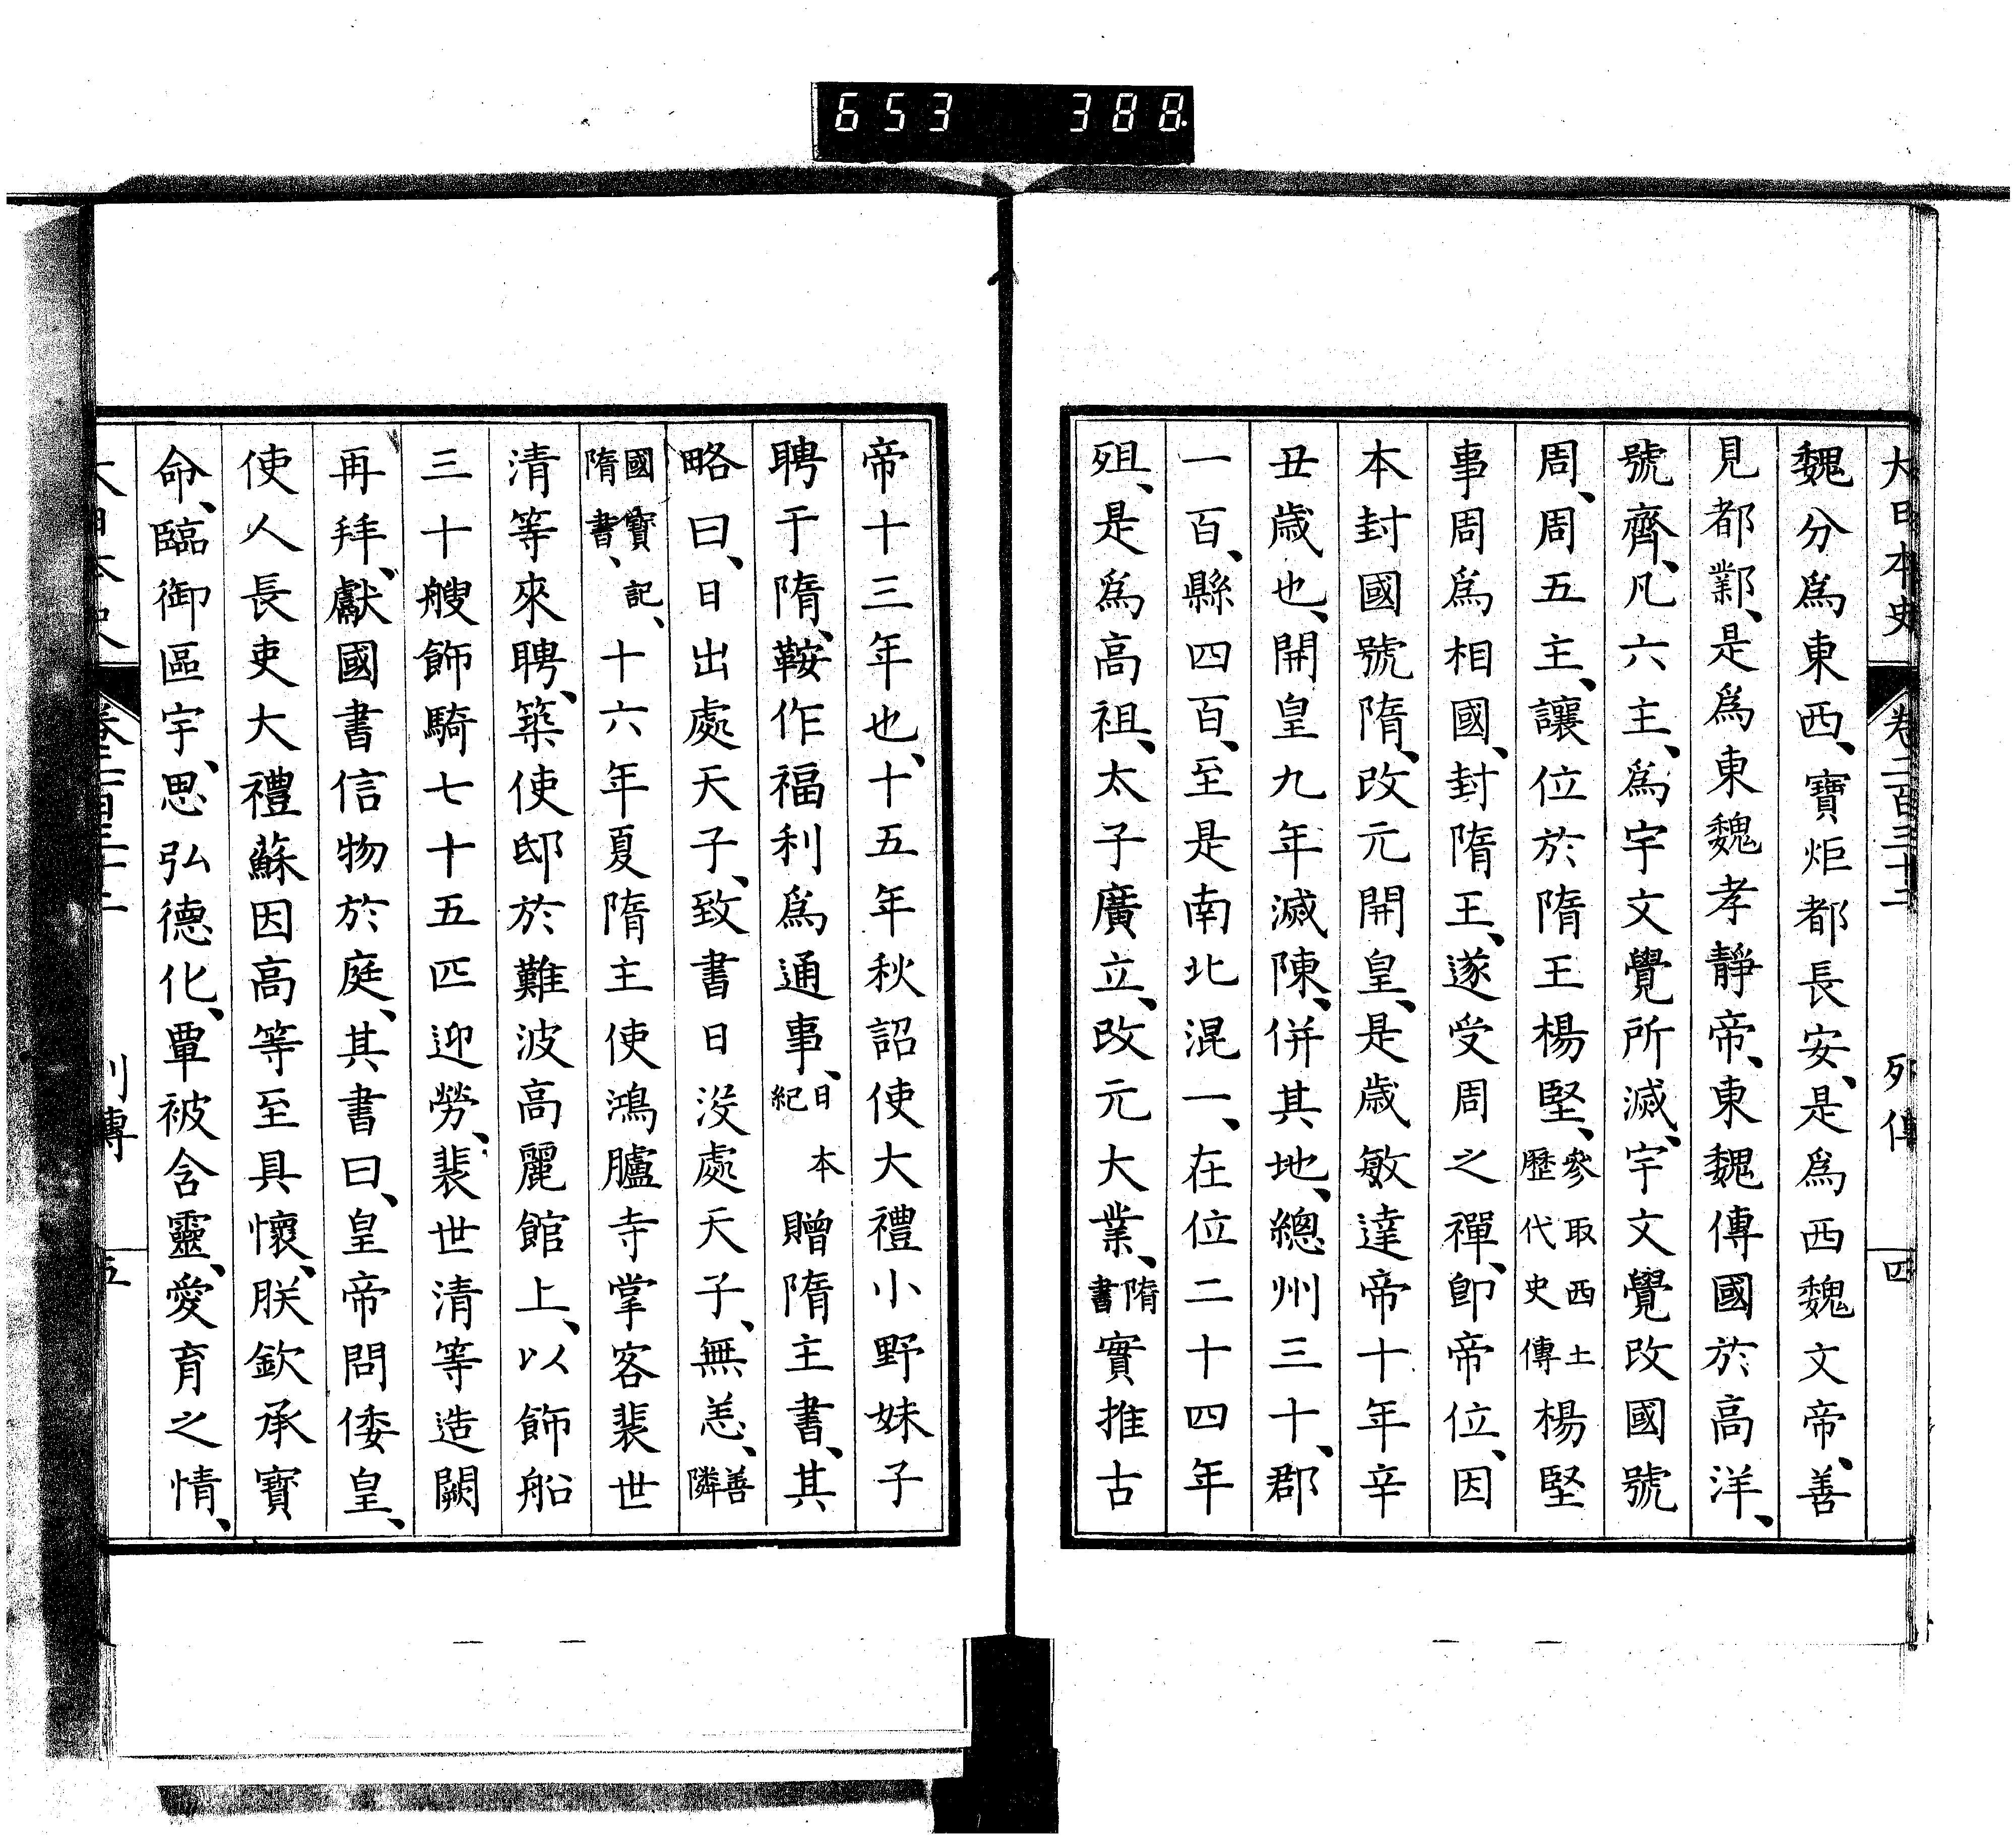 653 388
大日本史 卷二百三十二 列傳 四
魏分爲東西、寶炬都長安、是爲西魏文帝、善
見都鄴、是爲東魏孝靜帝、東魏傳國於高洋、
號齊、凡六主、爲宇文覺所滅、宇文覺改國號
周、周五主、讓位於隋王楊堅、參取西土歷代史傳楊堅
事周爲相國、封隋王、遂受周之禪、卽帝位、因
本封國號隋、改元開皇、是歲敏達帝十年辛
丑歲也、開皇九年滅陳、併其地、總州三十、郡
一百、縣四百、至是南北混一、在位二十四年
殂、是爲高祖、太子廣立、改元大業、隋書實推古
帝十三年也、十五年秋詔使大禮小野妹子
聘于隋、鞍作福利爲通事、日本紀贈隋主書、其
略曰、日出處天子、致書日沒處天子、無恙、善隣
國寶記、隋書、十六年夏隋主使鴻臚寺掌客裴世
清等來聘、築使邸於難波高麗館上、以飾船
三十艘飾騎七十五匹迎勞、裴世清等造闕
再拜、獻國書信物於庭、其書曰、皇帝問倭皇、
使人長吏大禮蘇因高等至具懷、朕欽承寶
命、臨御區宇、思弘德化、覃被含靈、愛育之情、
大日本史 卷二百三十二 列傳 五